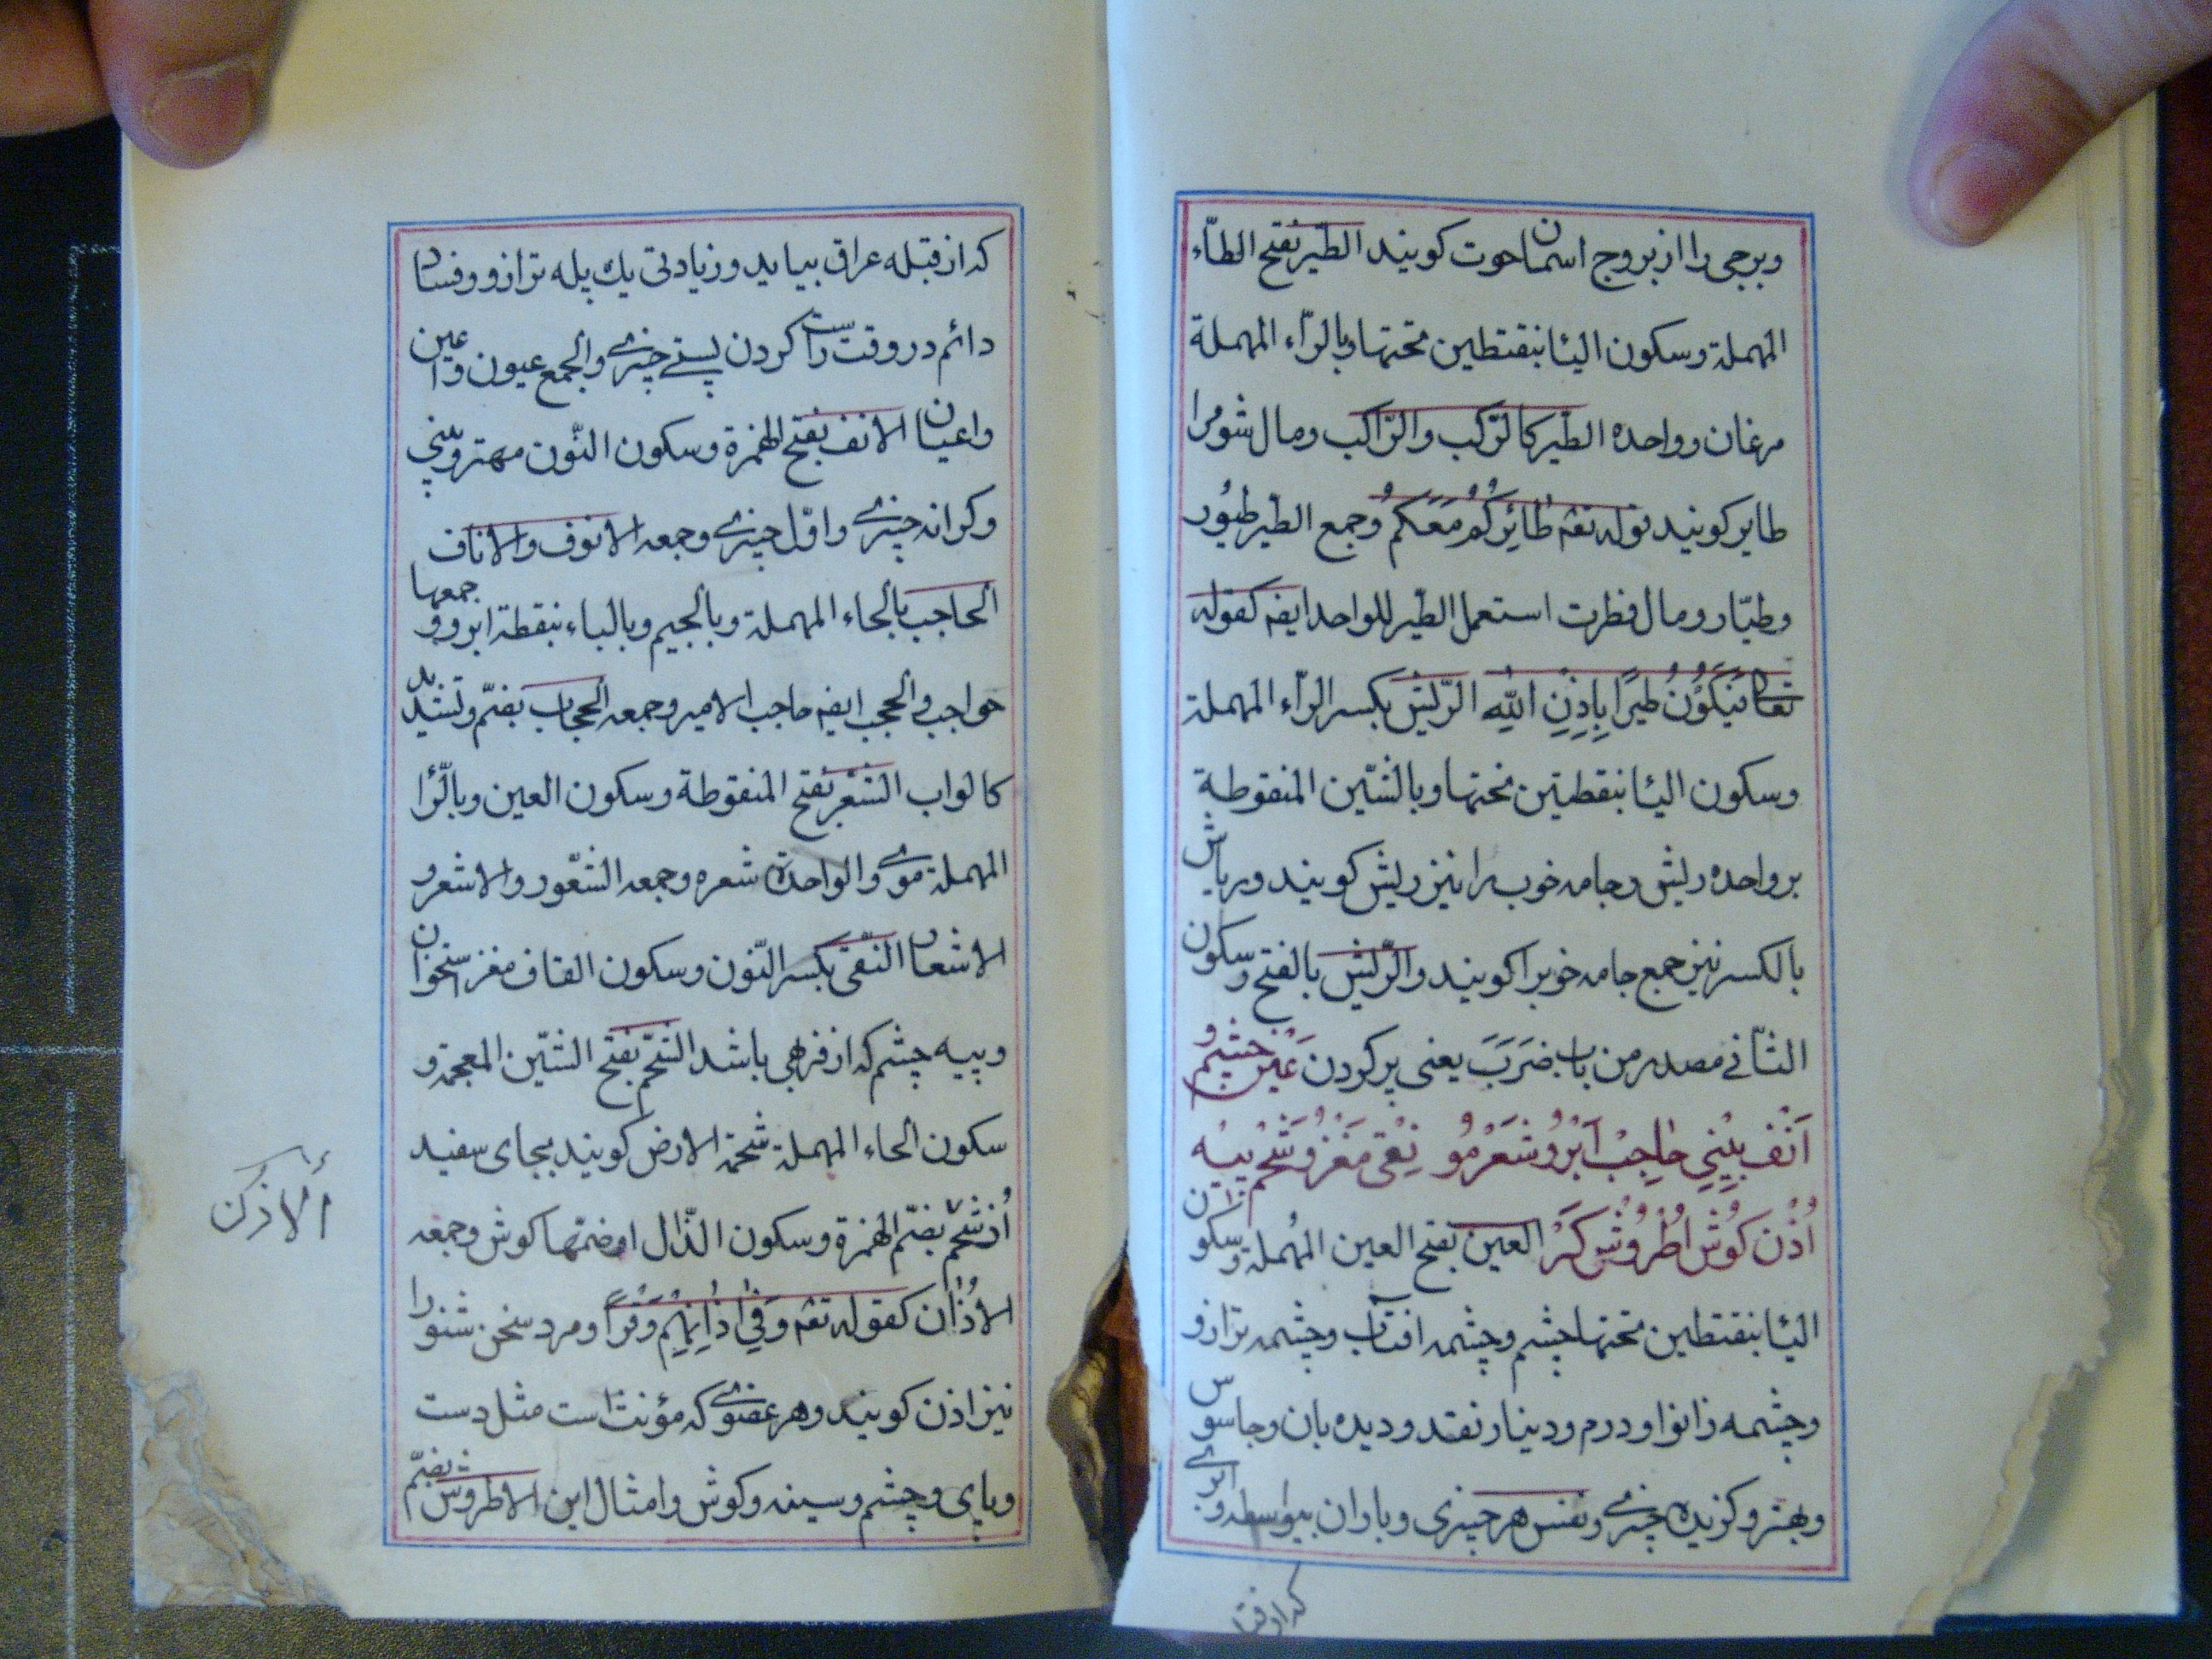 وبرجی را از بروج اسمان حوت کویند الطّیر بفتح الطّاء
المهملة وسکون الیا بنقتطین تحتها وبالرّاء المهملة
مرغان وواحده الطّیر کالرّکب والرّاکب ومال شوم را
طایر کویند قوله تعه طائِرُکُمْ مَعَکُمْ وجمع الطیر طیُور
وطیّار ومال فطرت استعمل الطّیر للواحد ایضه کقوله
تعالی فَیَکُوُنُ طَیرًا بِاِذِنِ اللهِ الرّیش بکسر الرّاء المهملة
وسکون الیا بنقطیتن تحتها وبالشّین المنقوطة
بر واحده ریش وجامه خوب را نیز ریش کویند وریاش
بالکسر نیز جمع جامه خوبرا کویند والرّیش بالفتح وسکون
الثّانی مصدر من باب ضَرَبَ یعنی پر کردن عَیْن چشم و
اَنْف بِینِی حاجِبْ اَبْرُو شَعَرْ مُو نِقْی مَغْز وَ شَحْم پیه
اُذْن کُوش اُطْرُوُش کَرْ العین بفتح العین المُهملة وسکون
الیا بنقتطین تحتها چشم وچشمه افتاب وچشمه ترازو
وچشمه زانو او درم ودینار نقد ودیده بان وجاسوس
وبهتر وکزیده چیزی ونفس هر چیزی وباران بیواسطه وابری
که از قبله
که از قبله عراق بیاید وزیادتی یك پله ترازو وفساد
دائم در وقت راست کردن پستے چیزے والجمع عیون واعین
واعیان الانف بفتح الهمزة وسکون النّون مهتر وبینی
وکرانه چیزے واوّل چیزے وجمعه الانوف والاناف
الحاجب بالحاء المهملة وبالجیم وبالباء بنقطة ابرو و جمعها
حواجب والحجب ایضه حاجب الامیر وجمعه الحجاب بضمّ وتشدید
کالواب الشّعر بفتح المنقوطة وسکون العین وبالّرا
المهملة موے والواحدة شعره وجمعه الشّعور والاشعر و
الاشعار النّقی بکسر النّون وسکون القاف مغز استخوان
وپیه چشم که از فرهی باشد الشّحم بفتح الشّین المعجمة و
سکون الحاء المهملة شحمة الارض کویند بجای سفید
اُذشحم بضمّ الهمزة وسکون الذّال اوضمّها کوش وجمعه
الاُذان کقوله تعه وَفِی اذانِهِمْ وَقْرًا ومرد سخن شنو را
نیز اذن کویند وهر عضوے که مؤنث است مثل دست
وپای وچشم وسینه وکوش وامثال این الاطروش بضمّ
الاذن